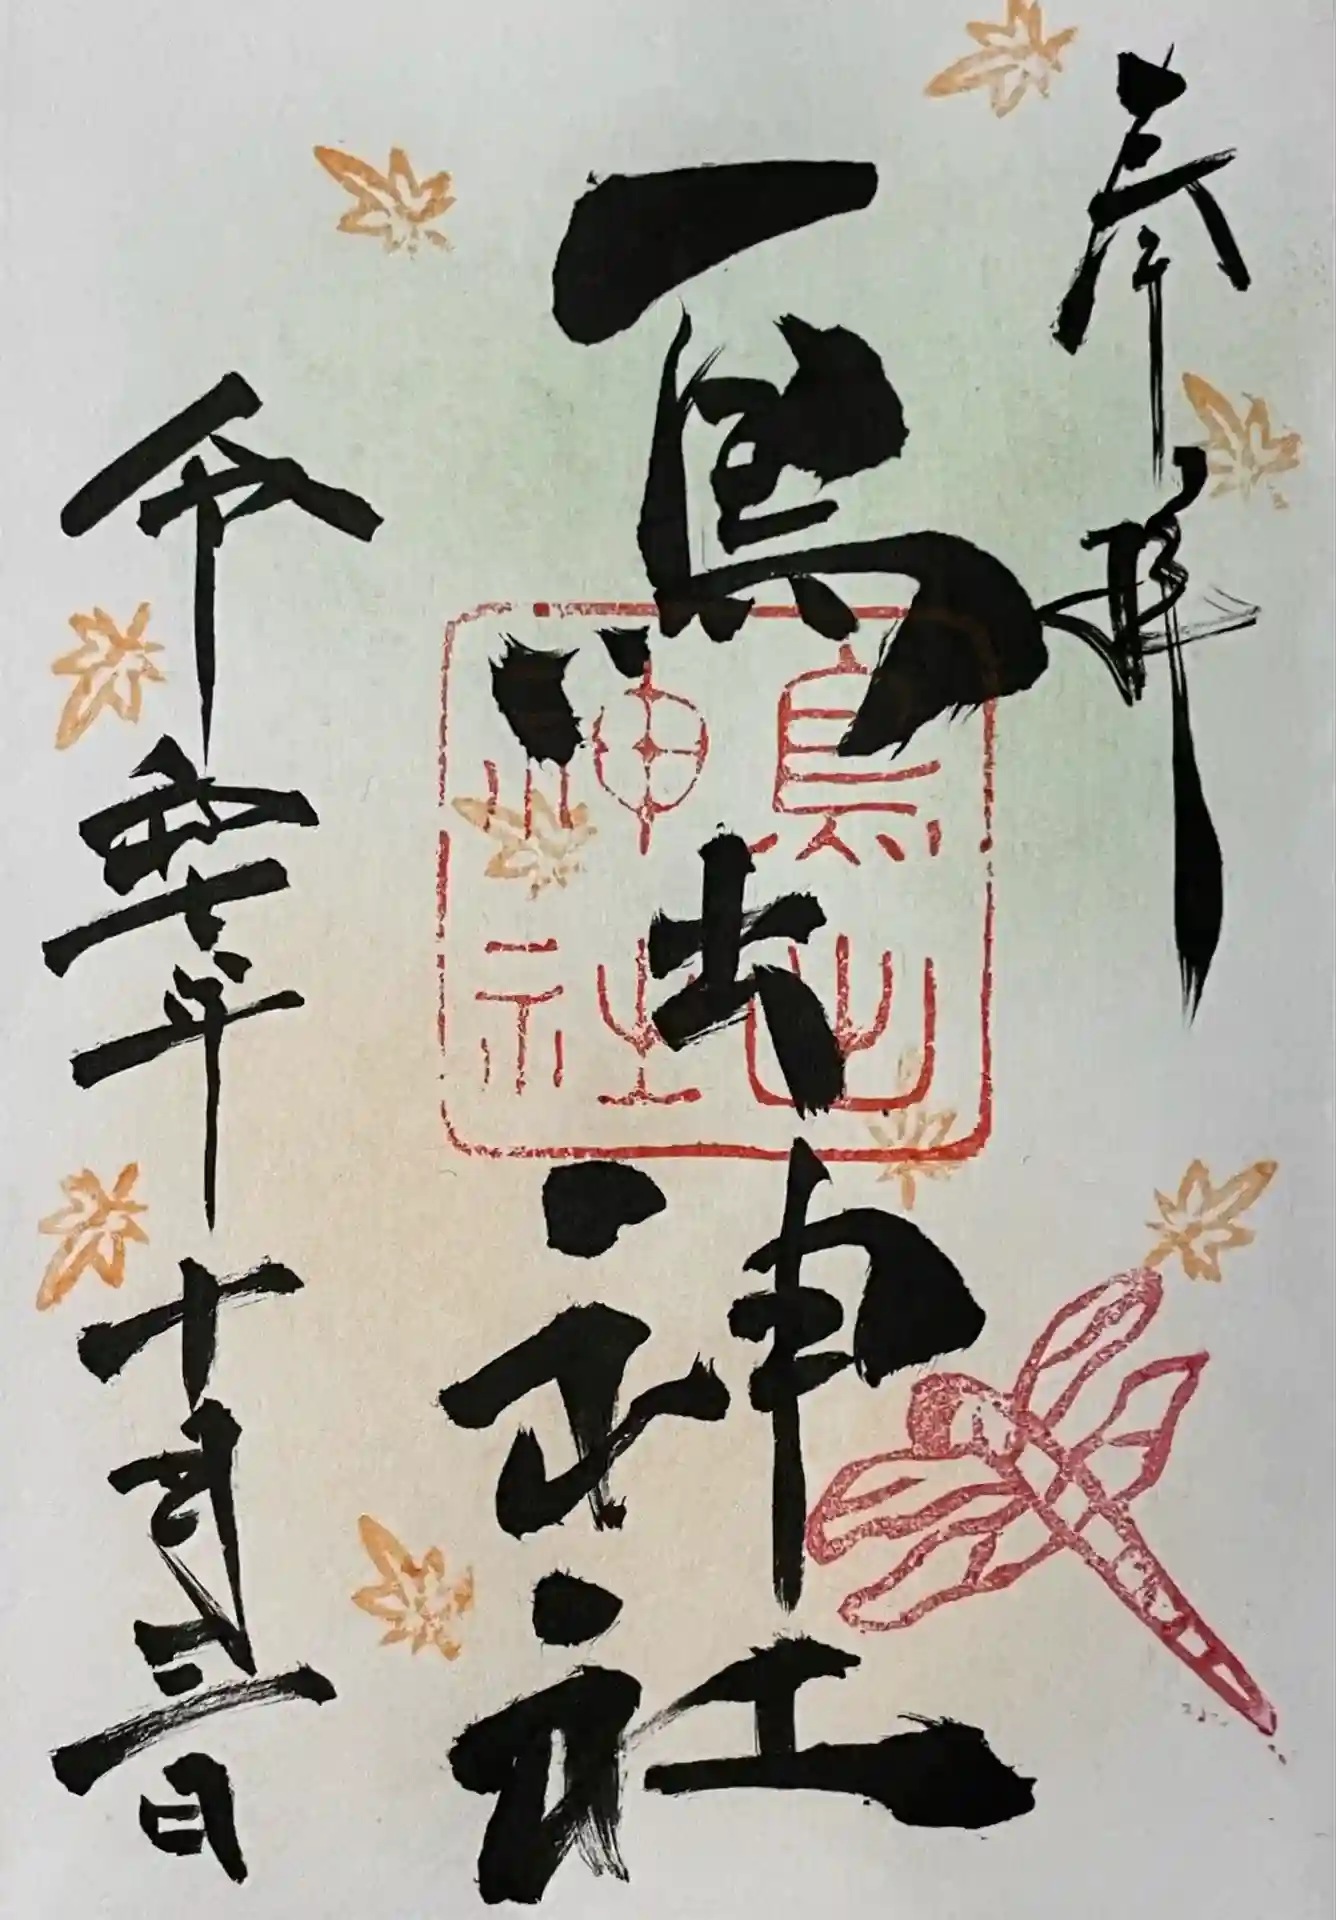 奉拝
鳥出神社
令和七年十月三日
鳥出
神社